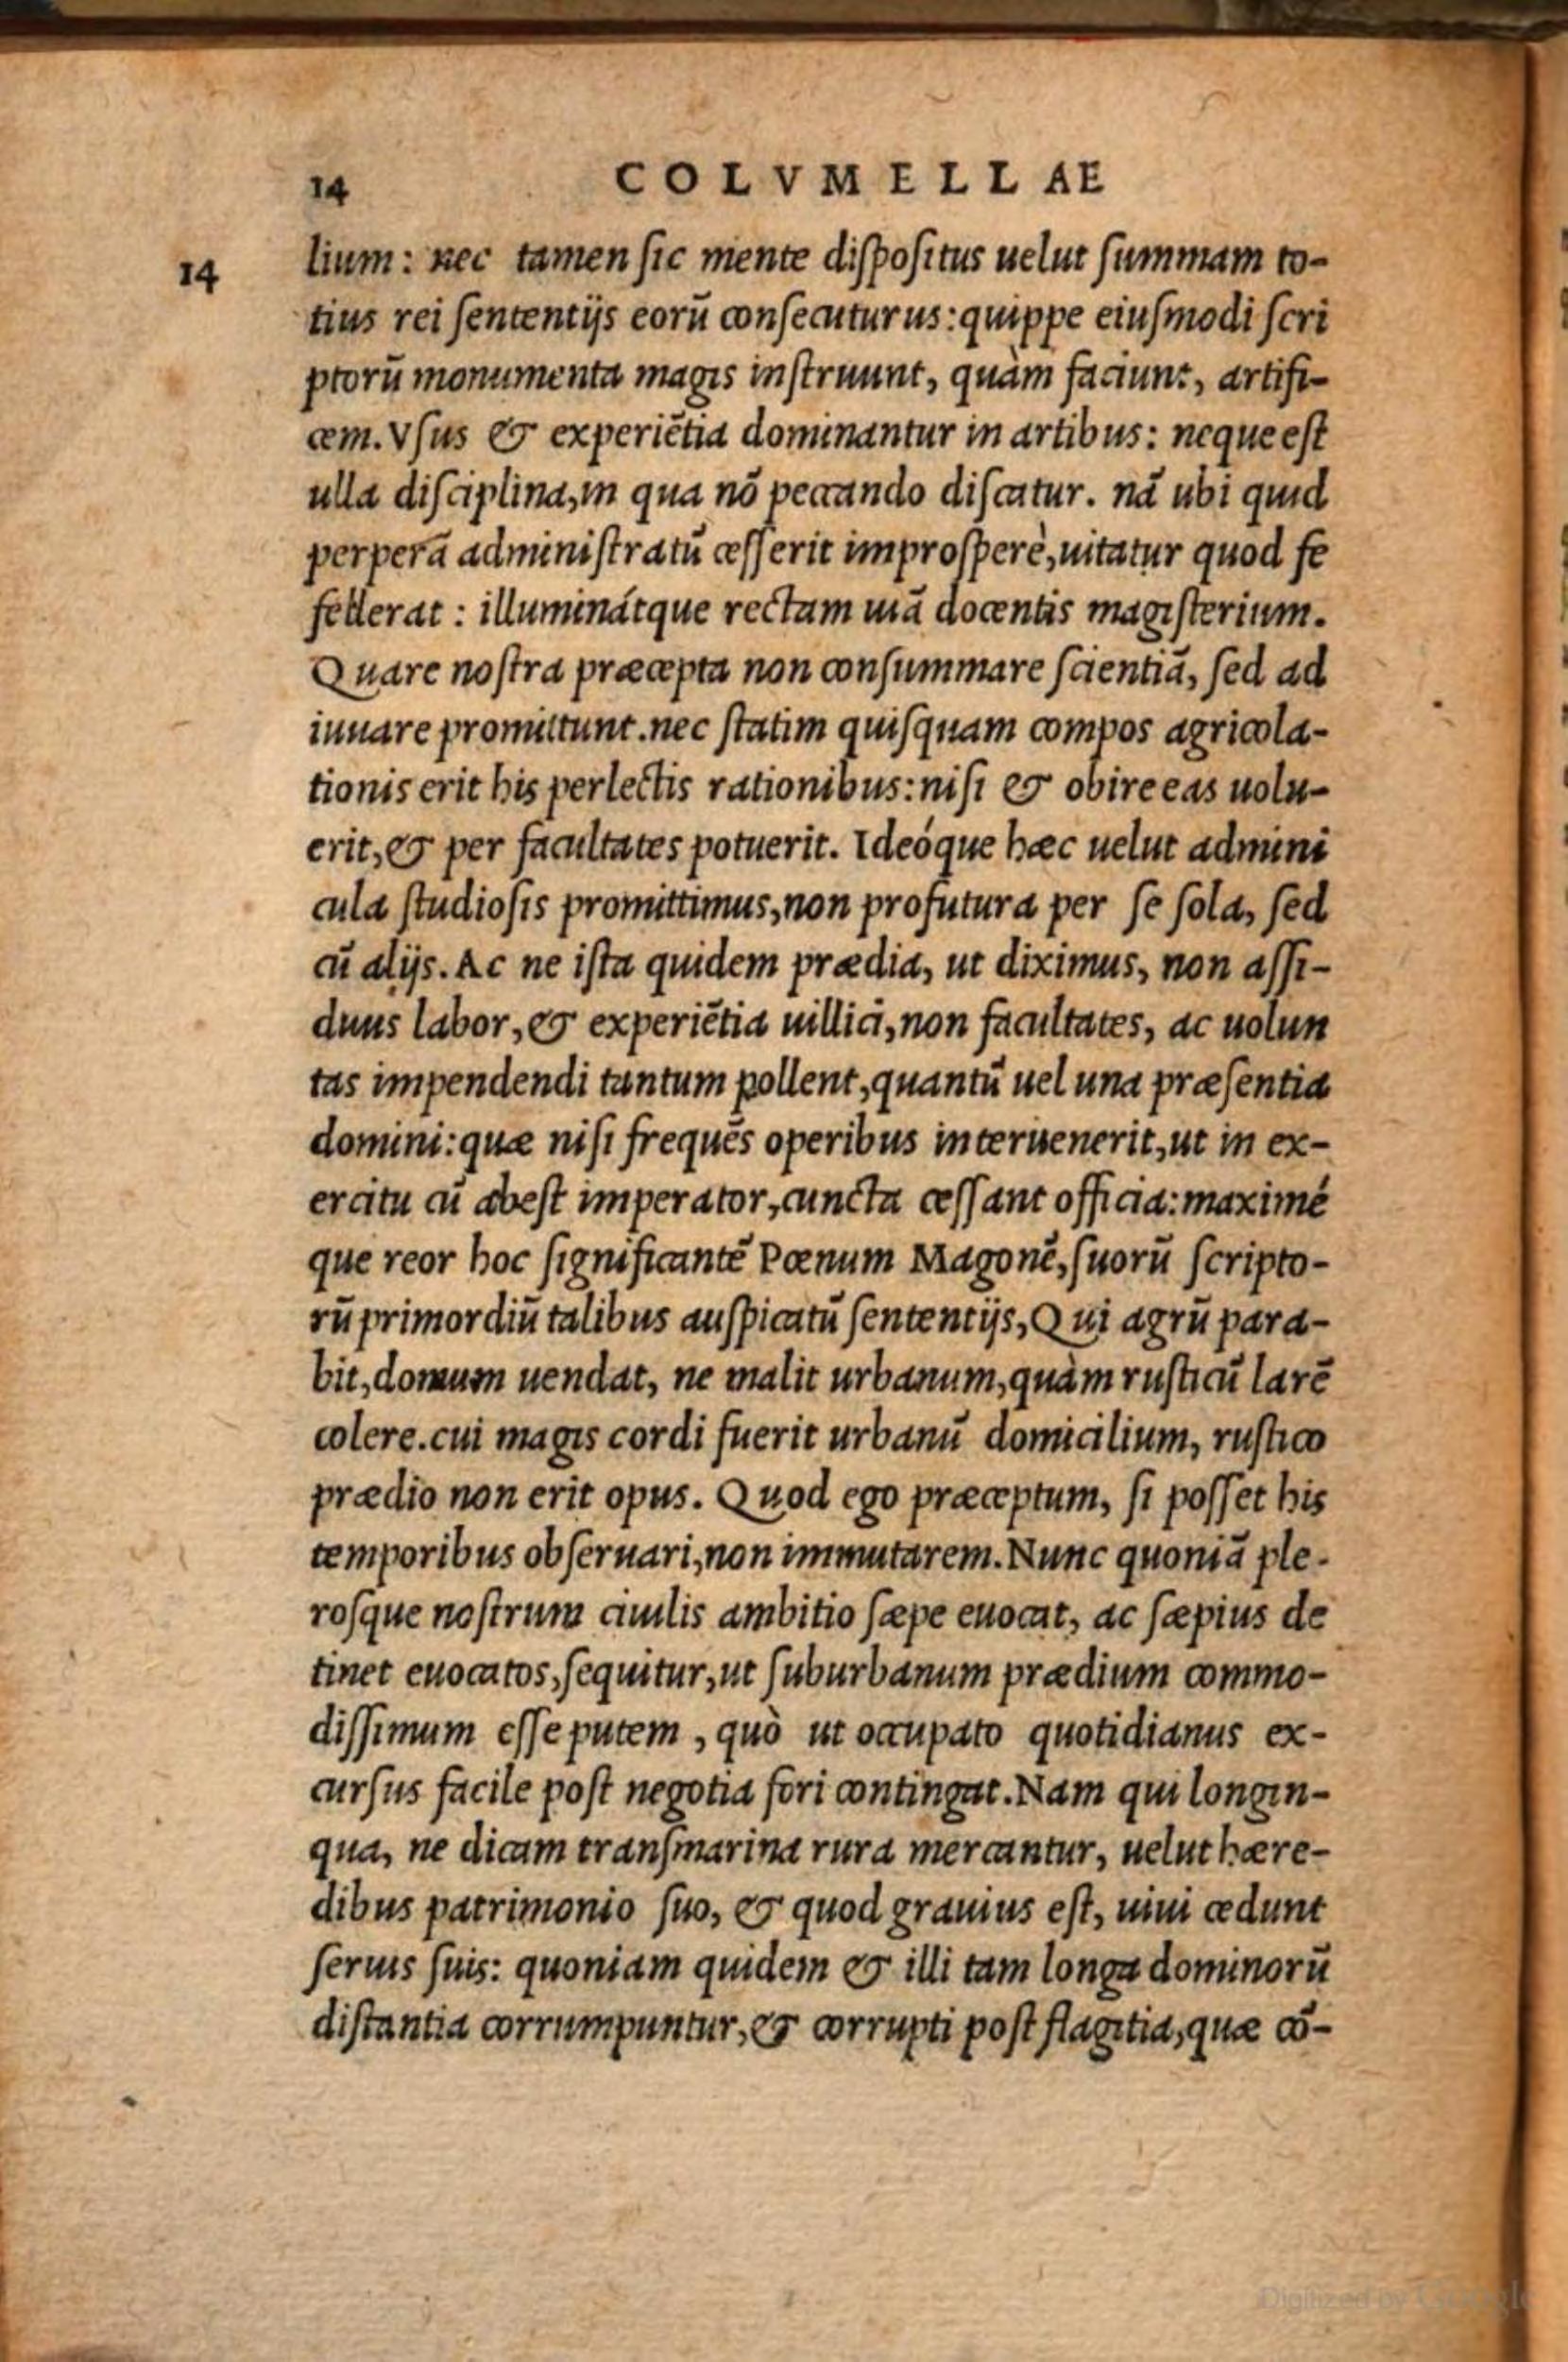 14 COLVMELLAE
14
lium: nec tamen ſic mente diſpoſitus uelut ſummam to-
tius rei ſententijs eorũ conſecuturus: quippe eiuſmodi ſcri
ptorũ monumenta magis inſtruunt, quàm faciunt, artifi-
cem. Vſus & experiẽtia dominantur in artibus: neque eſt
ulla diſciplina, in qua nõ peccando diſcatur. nã ubi quid
perperã adminiſtratũ ceſſerit improſperè, uitatur quod fe
fellerat: illuminátque rectam uiã docentis magiſterium.
Quare noſtra præcepta non conſummare ſcientiã, ſed ad
iuuare promittunt. nec ſtatim quiſquam compos agricola-
tionis erit his perlectis rationibus: niſi & obire eas uolu-
erit, & per facultates potuerit. Ideóque hæc uelut admini
cula ſtudioſis promittimus, non profutura per ſe ſola, ſed
cũ alijs. Ac ne iſta quidem prædia, ut diximus, non aſſi-
duus labor, & experiẽtia uillici, non facultates, ac uolun
tas impendendi tantum pollent, quantũ uel una præſentia
domini: quæ niſi frequẽs operibus interuenerit, ut in ex-
ercitu cũ abeſt imperator, cuncta ceſſant officia: maximé
que reor hoc ſignificantẽ Pœnum Magonẽ, ſuorũ ſcripto-
rũ primordiũ talibus auſpicatũ ſententijs, Qui agrũ para-
bit, domum uendat, ne malit urbanum, quàm ruſticũ larẽ
colere. cui magis cordi fuerit urbanũ domicilium, ruſtico
prædio non erit opus. Quod ego præceptum, ſi poſſet his
temporibus obſeruari, non immutarem. Nunc quoniã ple-
roſque noſtrum ciuilis ambitio ſæpe euocat, ac ſæpius de
tinet euocatos, ſequitur, ut ſuburbanum prædium commo-
diſſimum eſſe putem, quò ut occupato quotidianus ex-
curſus facile poſt negotia fori contingat. Nam qui longin-
qua, ne dicam tranſmarina rura mercantur, uelut hære-
dibus patrimonio ſuo, & quod grauius eſt, uiui cedunt
ſeruis ſuis: quoniam quidem & illi tam longa dominorũ
diſtantia corrumpuntur, & corrupti poſt flagitia, quæ cõ-
Digitized by Google